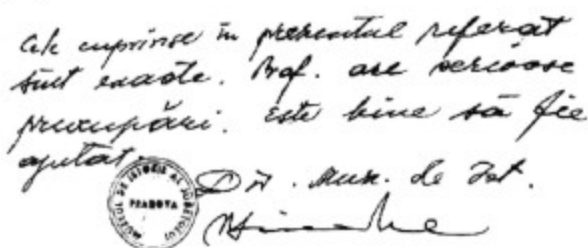 Cele cuprinse în prezentul referat
sunt exacte. Prof. are serioase
preocupări. Este bine să fie
ajutat.
Dir. Muz. de Ist.
MUZEUL DE ISTORIE AL JUDEȚULUI
PRAHOVA